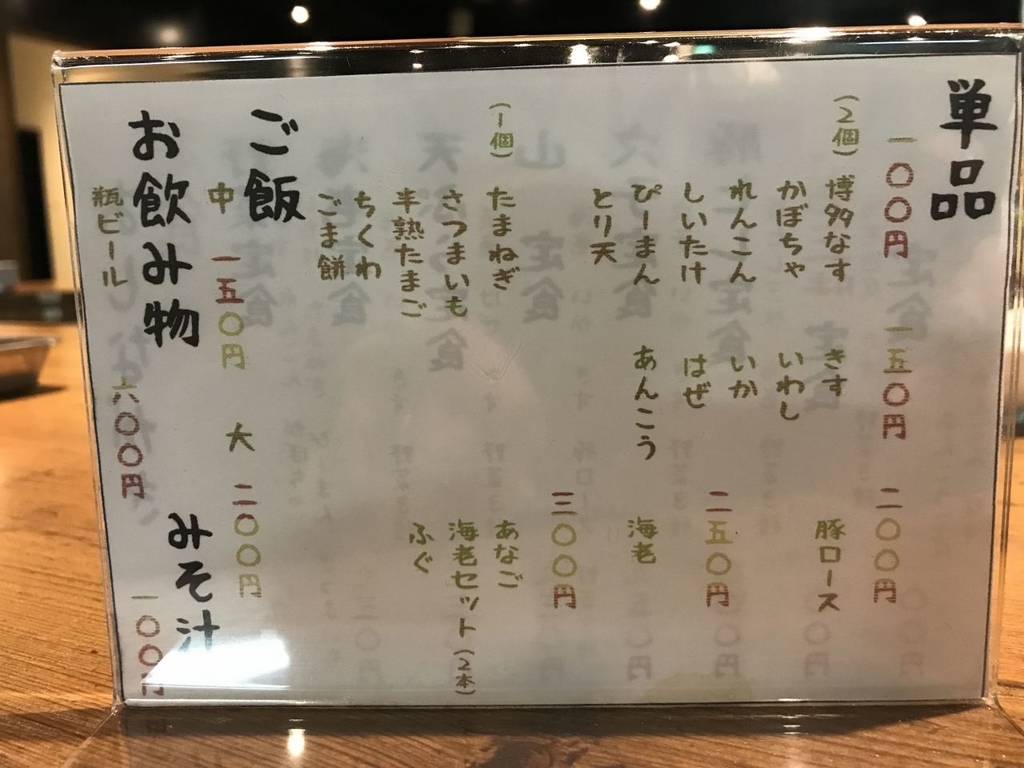 単品
一〇〇円
(2個) 博多なす
かぼちゃ
れんこん
しいたけ
ぴーまん
とり天
(1個) たまねぎ
さつまいも
半熟たまご
ちくわ
ごま餅
一五〇円
きす
いわし
いか
はぜ
あんこう
二〇〇円
豚ロース
二五〇円
海老
三〇〇円
あなご
海老セット(2本)
ふぐ
ご飯
中 一五〇円 大 二〇〇円
みそ汁
一〇〇円
お飲み物
瓶ビール 六〇〇円